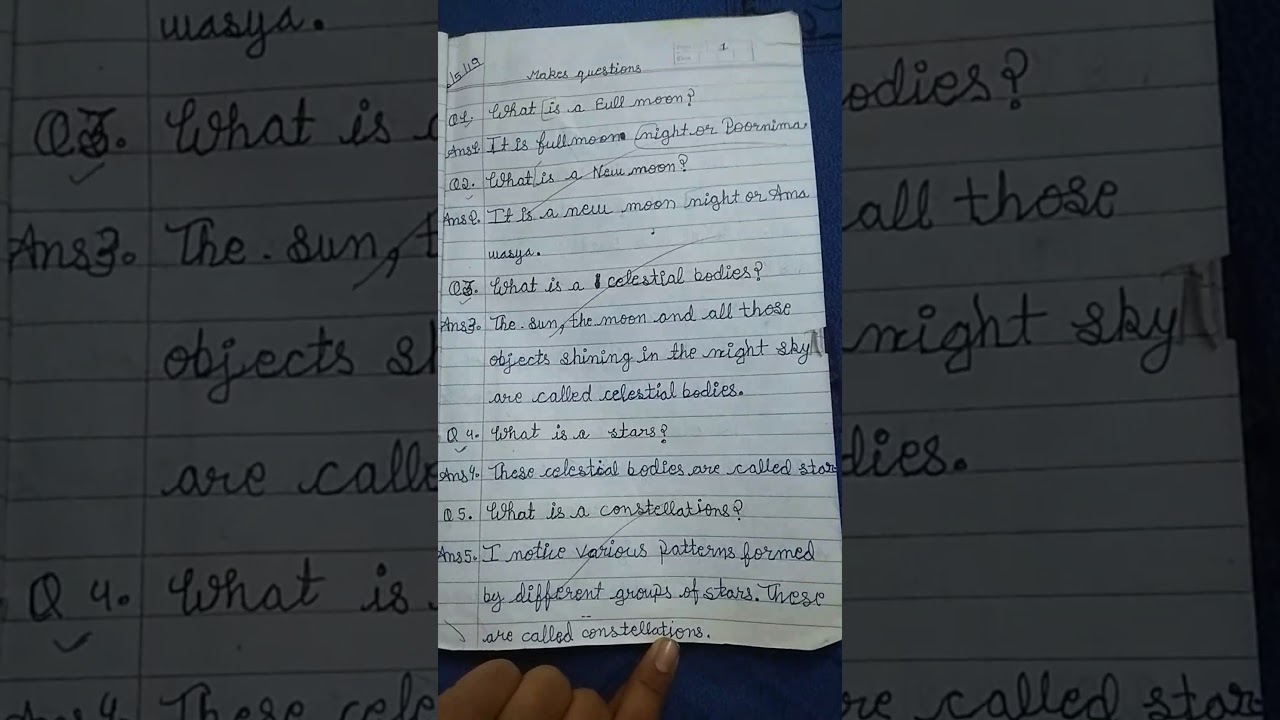 15/19
Makes questions
1
Q1. What is a Full moon?
Ans1. It is full moon night or Poornima
Q2. What is a New moon?
Ans2. It is a new moon night or Ama
wasya.
Q3. What is a celestial bodies?
Ans3. The sun, the moon and all those
objects shining in the night sky
are called celestial bodies.
Q 4. What is a stars?
Ans4. These celestial bodies are called star
Q 5. What is a constellations?
Ans5. I notice various patterns formed
by different groups of stars. These
are called constellations.